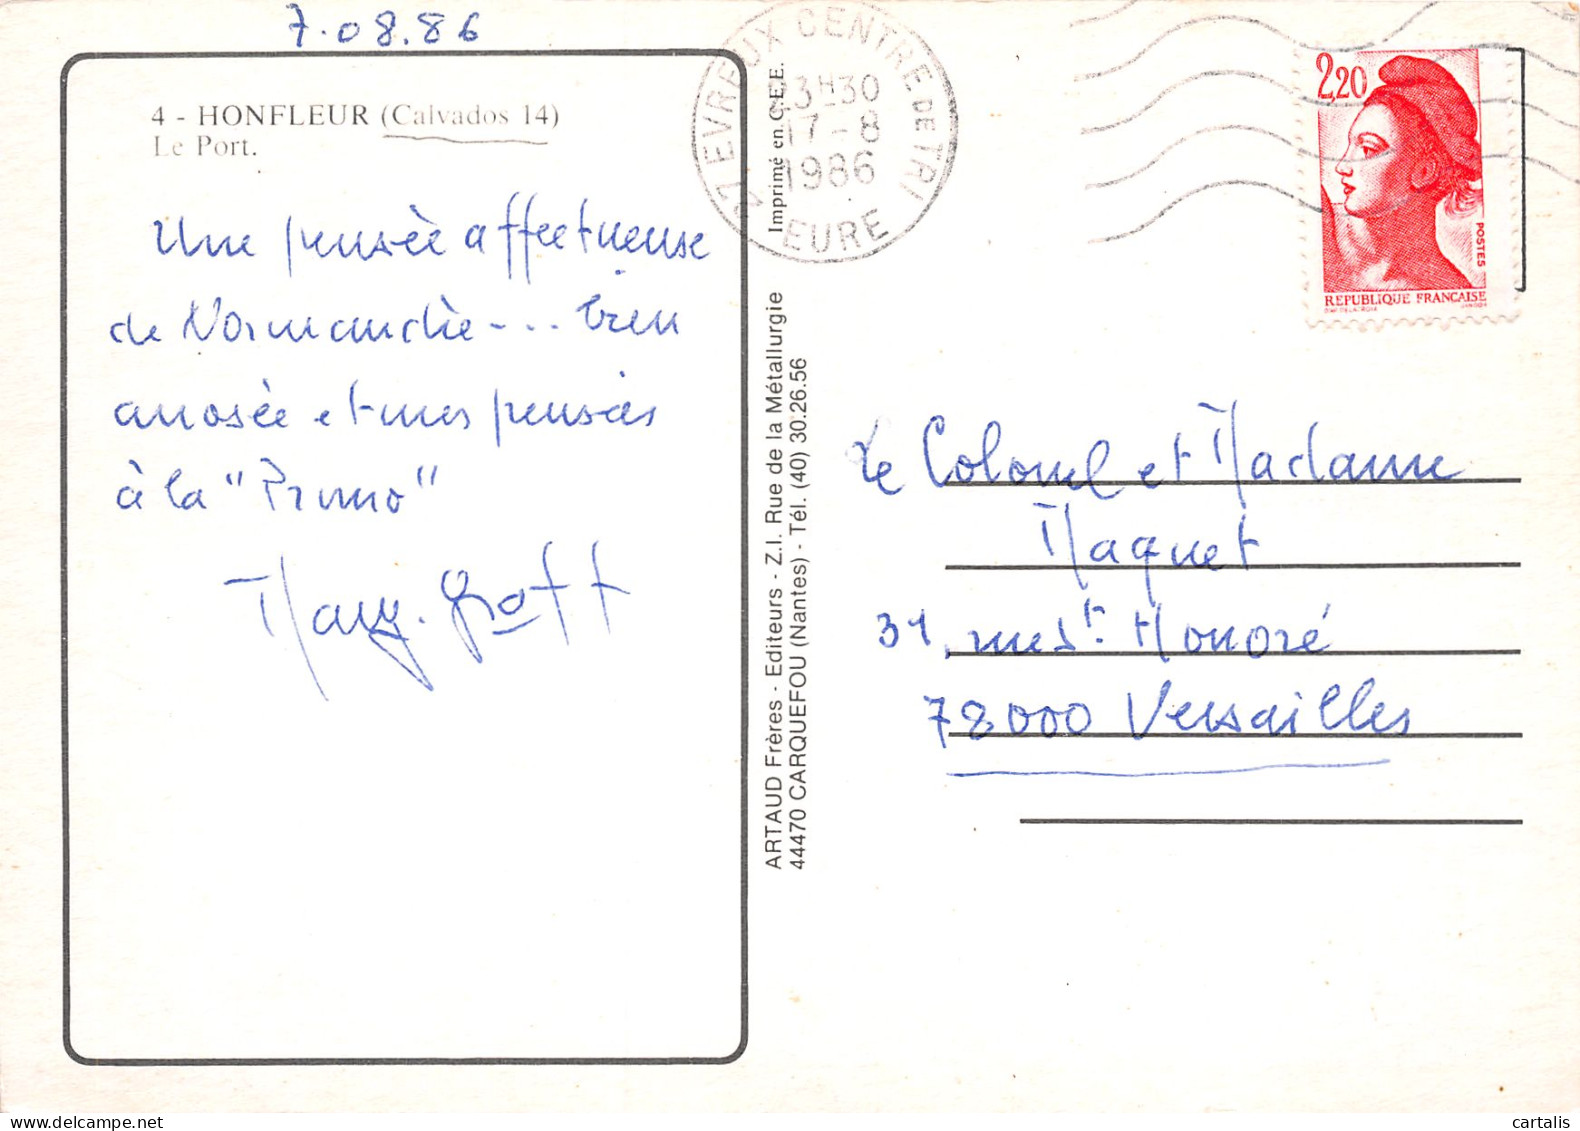 7.08.86
4 - HONFLEUR (Calvados 14)
Le Port.
Une pensée affectueuse
de Normandie - ... bien
arrosée et mes pensées
à la "Promo"
Imprimé en C.E.E.
ARTAUD Frères - Editeurs - Z.I. Rue de la Métallurgie
44470 CARQUEFOU (Nantes) - Tél. (40) 30.26.56
27 EVREUX CENTRE DE TRI
23H30
17-8
1986
EURE
2,20
POSTES
REPUBLIQUE FRANÇAISE
Le Colonel et Madame
Maquet
31, rue St Honoré
78000 Versailles
cartalis